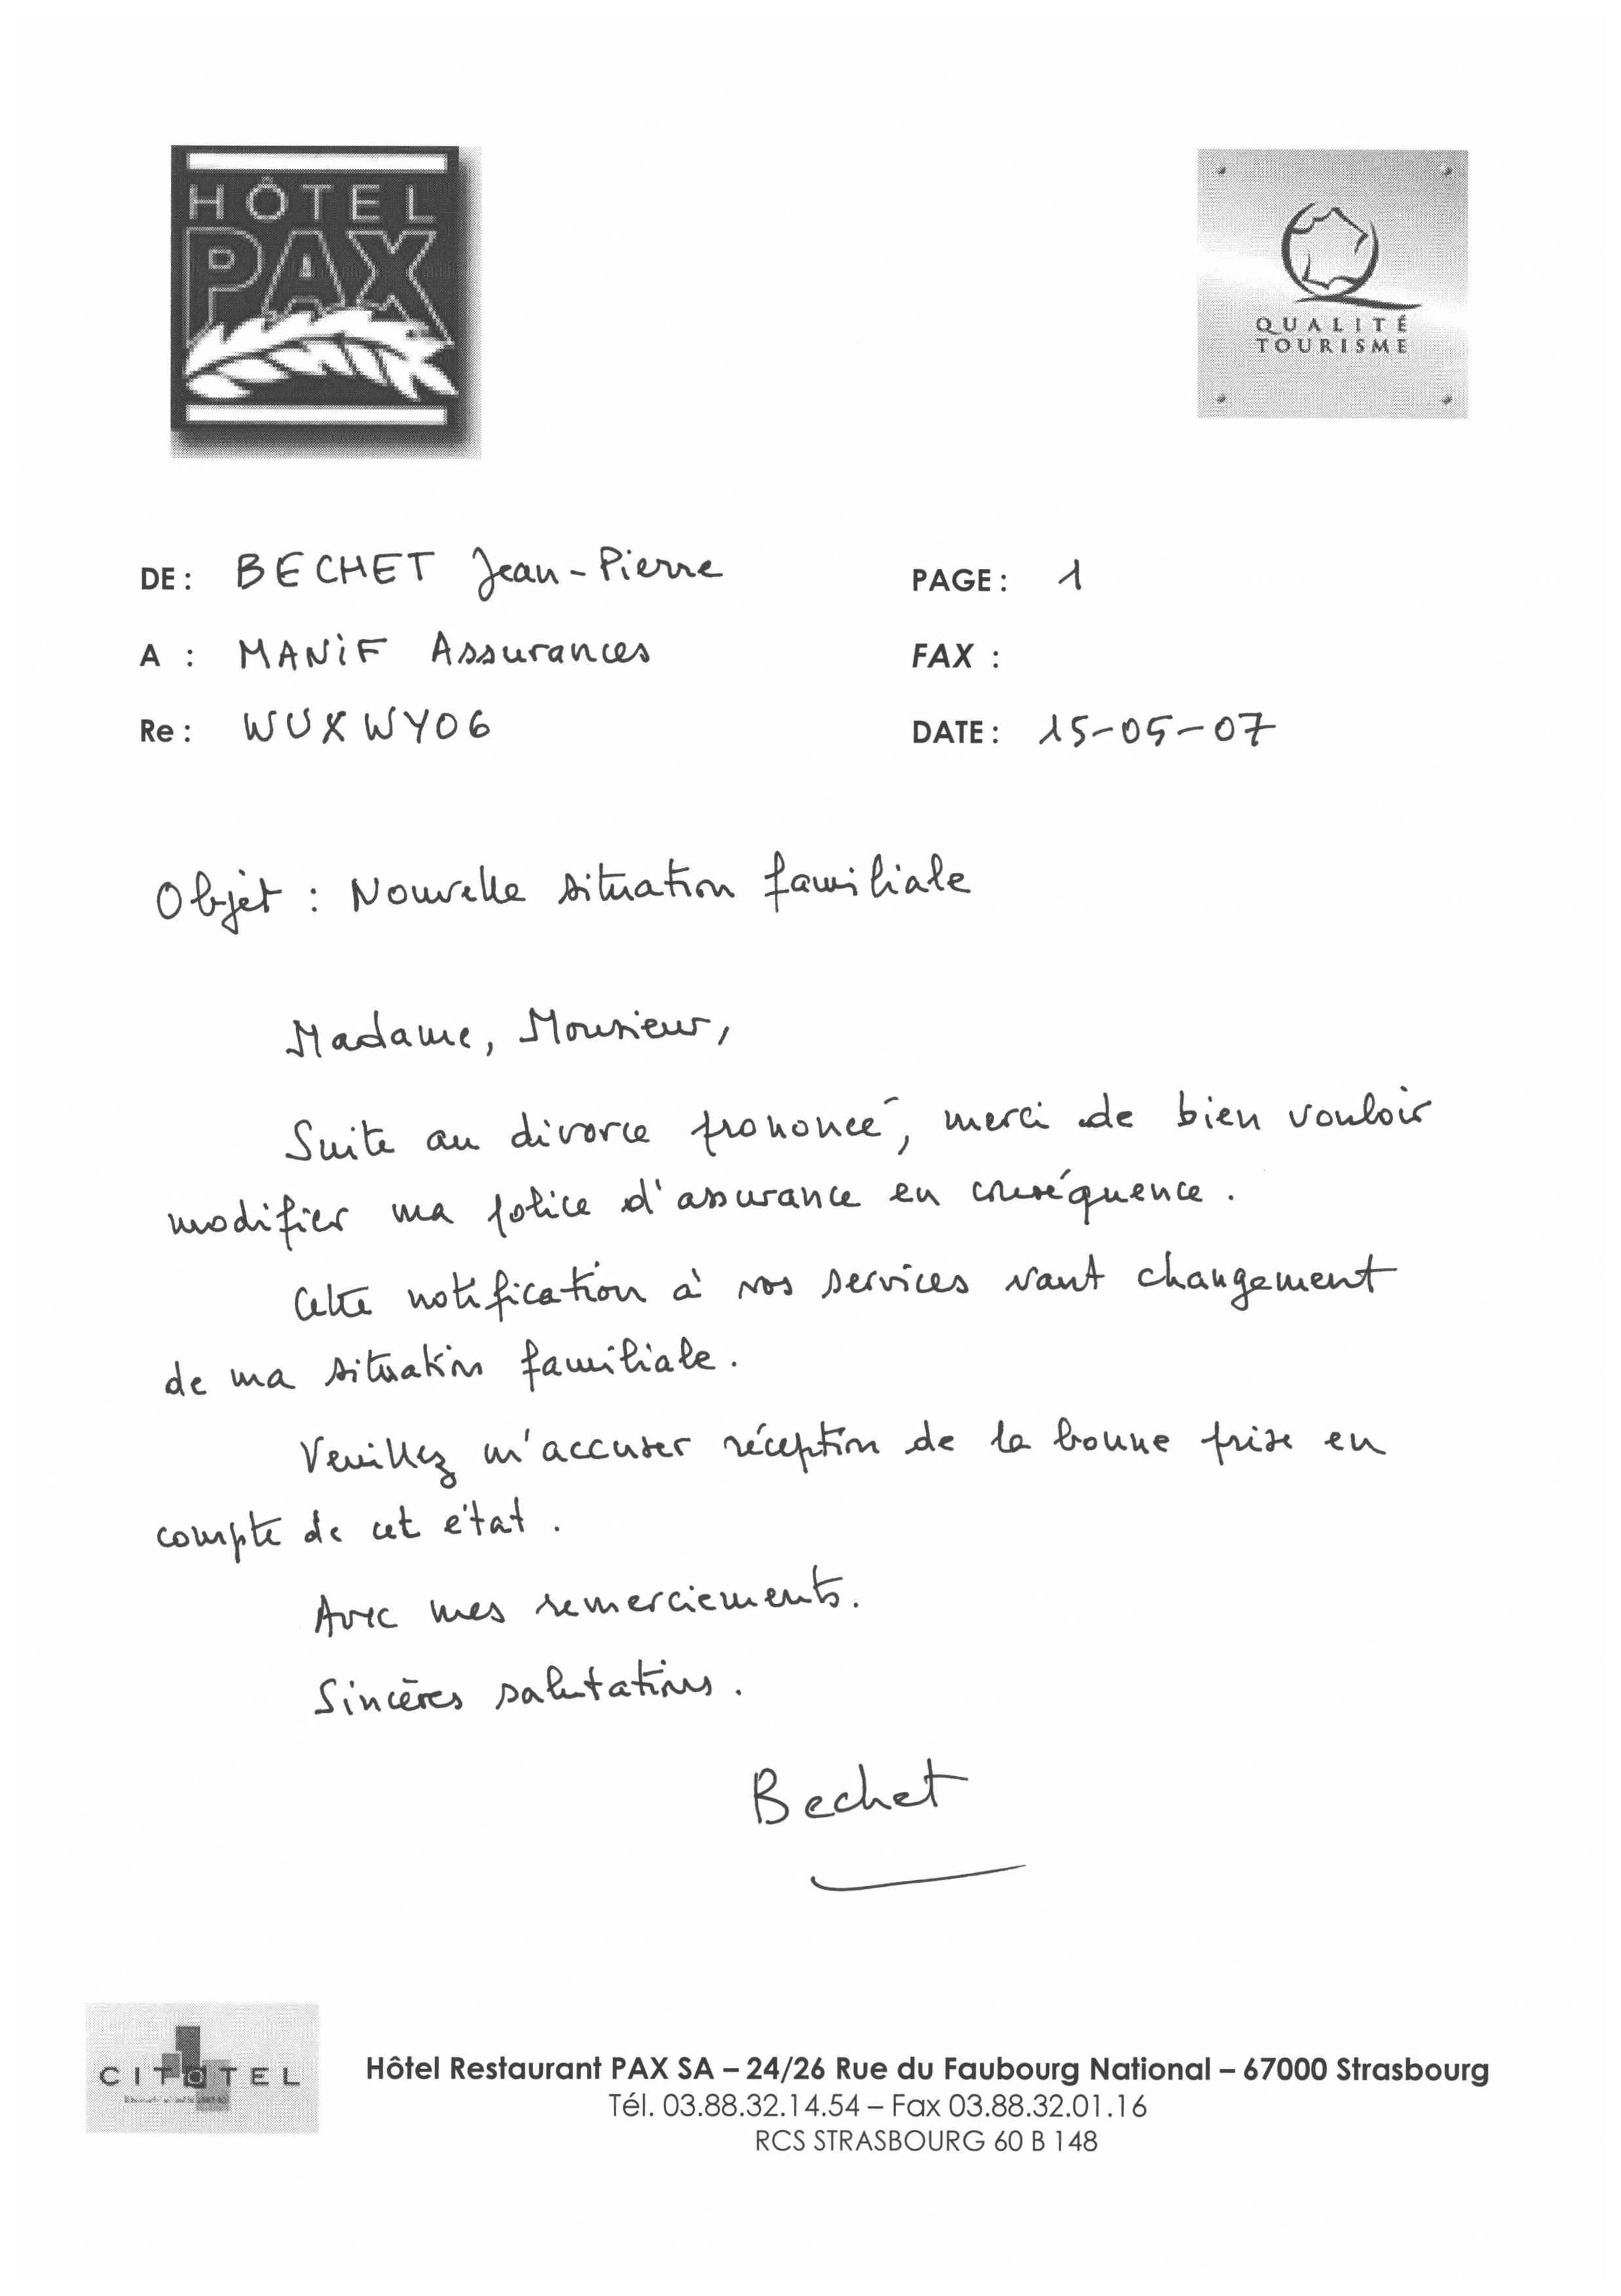 HÔTEL
PAX
QUALITÉ
TOURISME
DE : BECHET Jean-Pierre
PAGE : 1
A : MANiF Assurances
FAX :
Re : WUXWY06
DATE : 15-05-07
Objet : Nouvelle situation familiale
Madame, Monsieur,
Suite au divorce prononcé, merci de bien vouloir
modifier ma police d'assurance en conséquence.
Cette notification à vos services vaut changement
de ma situation familiale.
Veuillez m'accuser réception de la bonne prise en
compte de cet état.
Avec mes remerciements.
Sincères salutations.
Bechet
CITOTEL
Hôtel Restaurant PAX SA – 24/26 Rue du Faubourg National – 67000 Strasbourg
Tél. 03.88.32.14.54 – Fax 03.88.32.01.16
RCS STRASBOURG 60 B 148